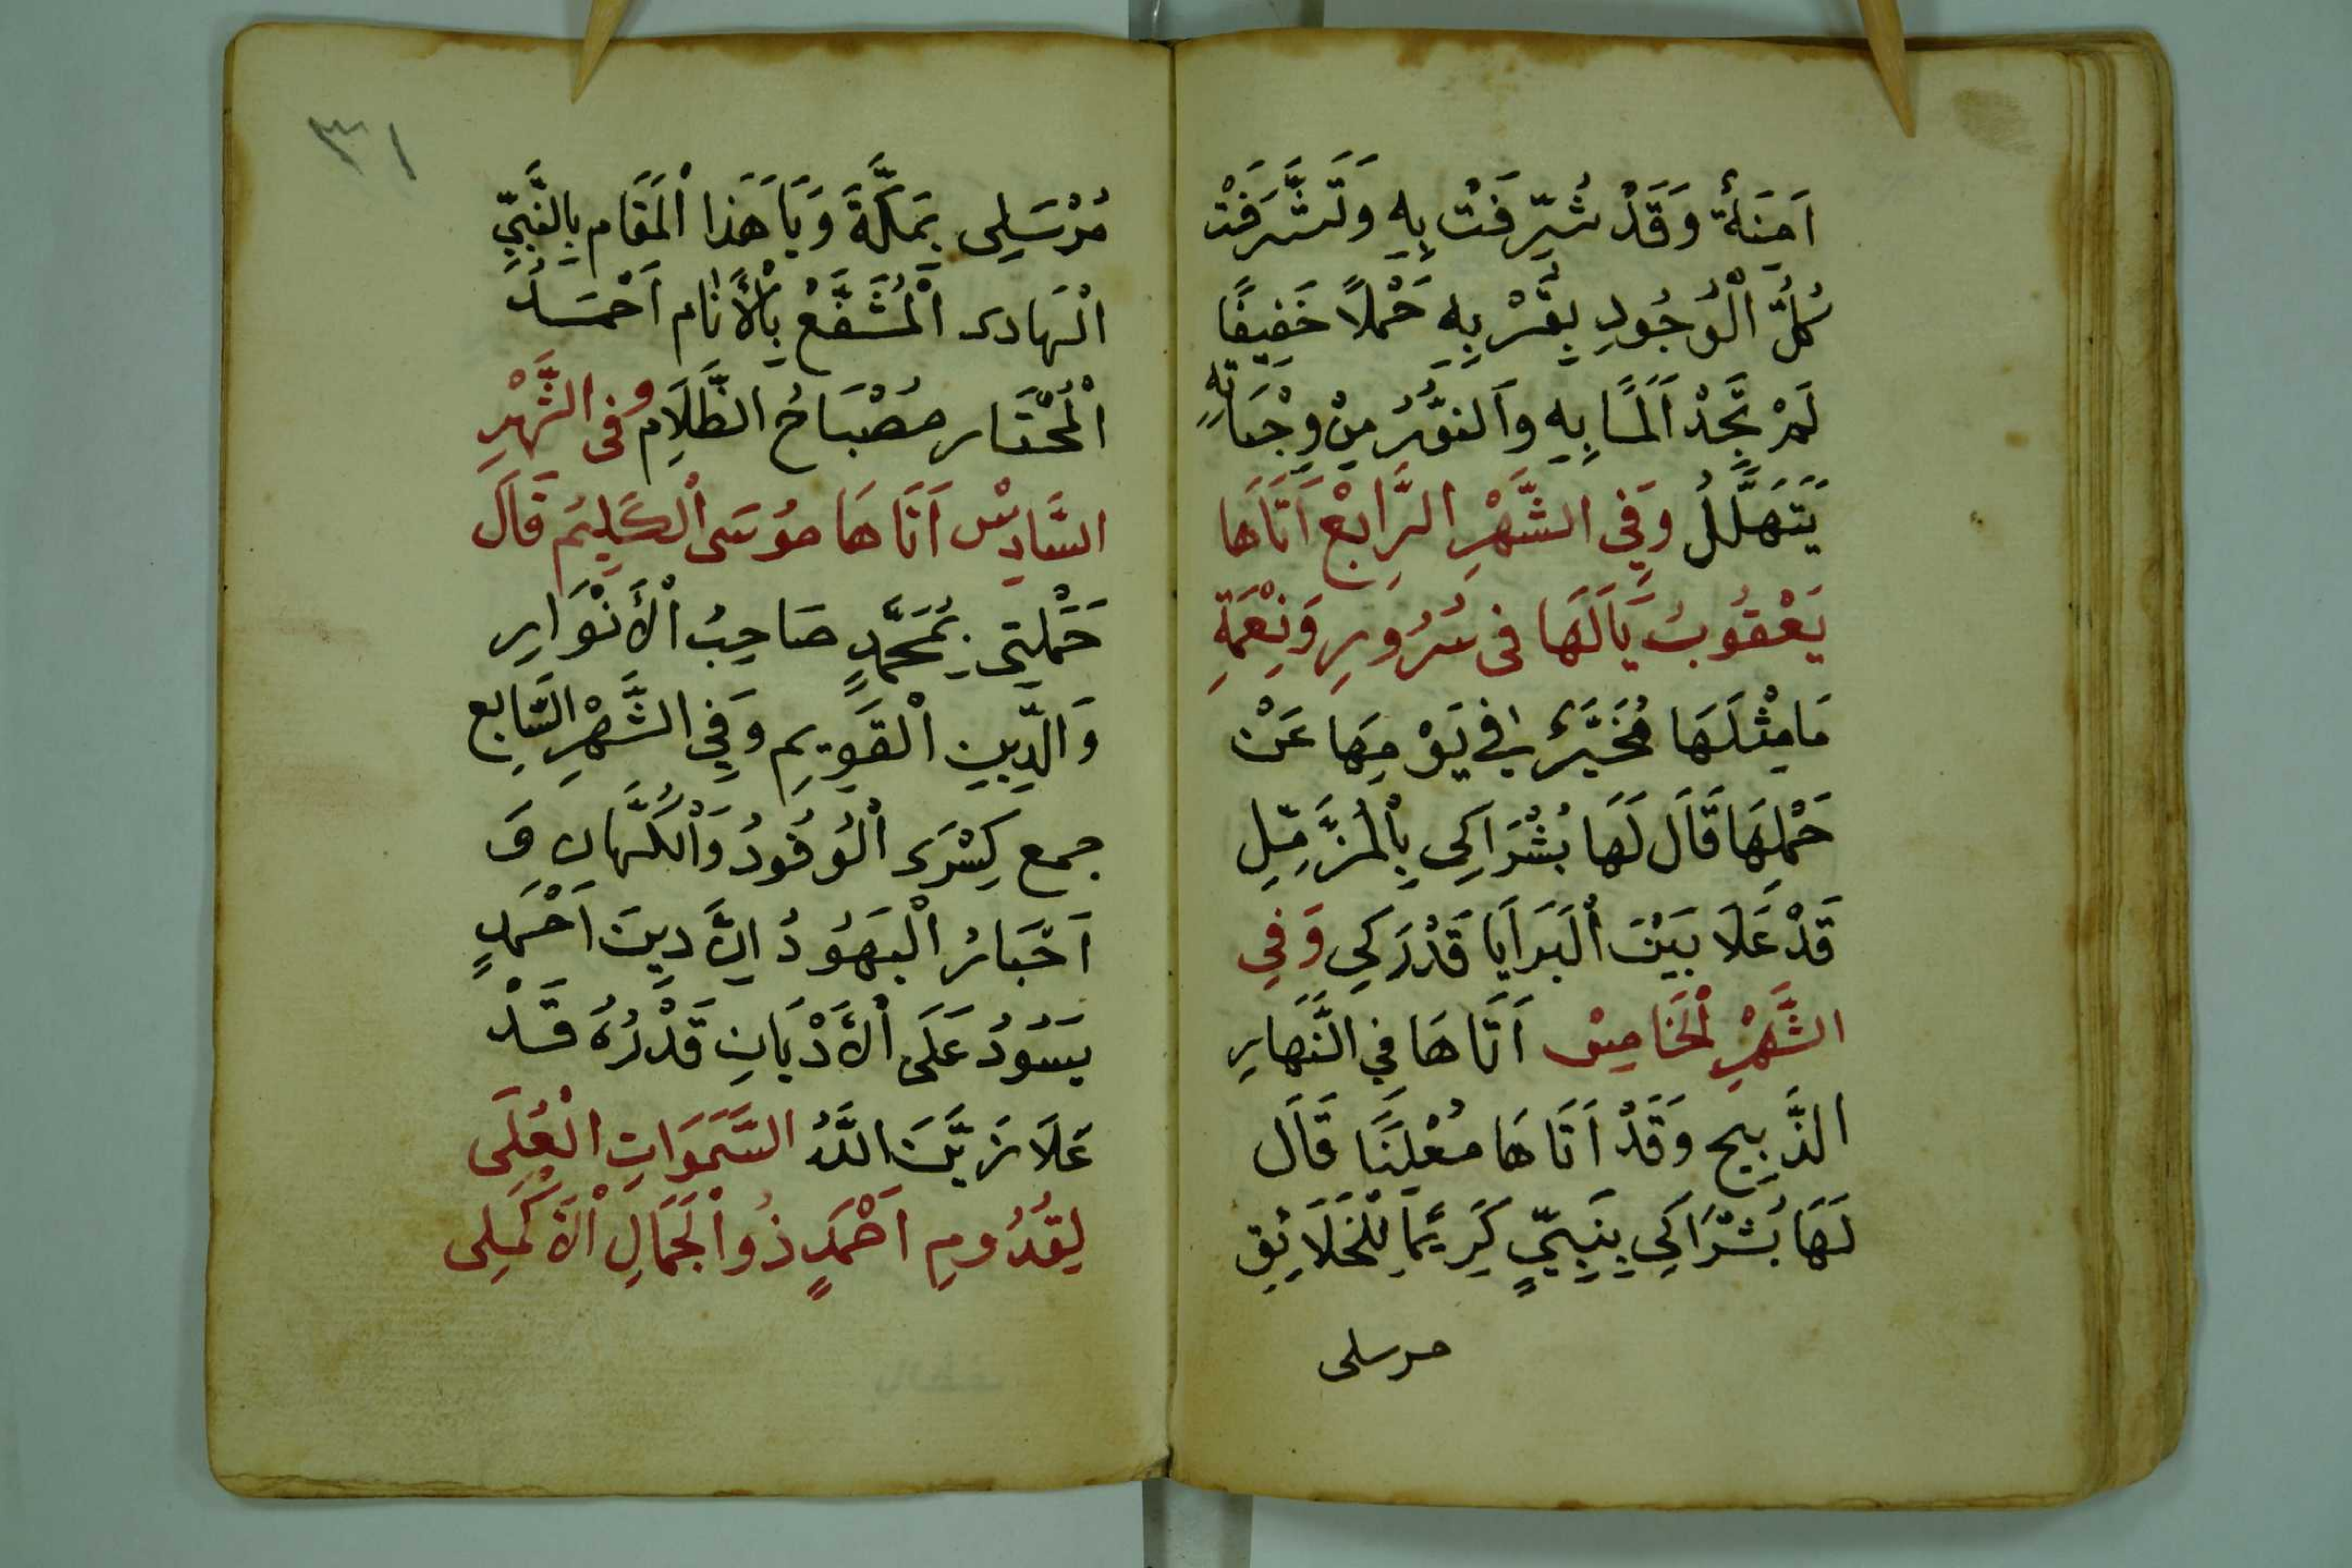 اَمِنَةٌ وَقَدْ شُرِّفَتْ بِهِ وَتَشَرَّفَتْ
كُلُّ الْوُجُودِ بِقُرْبِهِ حَمْلاً خَفِيفًا
لَمْ تَجِدْ اَلَمًا بِهِ وَالنُّوُرُ مِنْ وِجْنَاتِهِ
يَتَهَلَّلُ وَفِي الشَّهْرِ الرَّابِعْ اَتَاهَا
يَعْقُوبُ يَالَهَا فى سُرُورِ وَنِعْمَةِ
مَامِثْلَهَا مُخَيَّرَةٌ فِي يَوْمِهَا عَنْ
حَمْلِهَا قَالَ لَهَا بُشْرَاكِى بِالْمُزَّمِّلِ
قَدْ عَلَا بَيْنَ الْبَرَايَا قَدْرَكِي وَفِي
الشَّهْرِ الْخَامِسْ اَتَاهَا فِي النَّهَارِ
الذَّبِيح وَقَدْ اَتَاهَا مُعْلِنًا قَالَ
لَهَا بُشْرَاكِي بِنَبِيٍّ كَرِيْمًا لِلْخَلَائِقِ
مرسلى
٣١
مُرْسَلِى بِمَكَّةَ وَيَا هَذَا الْمَقَام بِالنَّبِيِّ
الْهَادى الْمُشَفَّعْ بِالْأَنَام اَحْمَدُ
الْمُخْتَار مُصْبَاحُ الظَّلَامِ وفى الشَّهْرِ
السَّادِسْ اَتَاهَا مُوسَى الْكَلِيمَ قَالَ
حَمَلْتِى بِمُحَمَّدٍ صَاحِبُ الْأَنْوَارِ
وَالدِّينِ الْقَوِيمِ وَفِي الشَّهْرِ السَّابِع
جمع كِسْرَى الْوُفُودُ وَالْكُهَّانِ وَ
اَحْبَارُ الْيَهُودُ اِنَّ دِينَ اَحْمَدٍ
يَسُودُ عَلَى الْأَدْيَانِ قَدْرُهُ قَدْ
عَلَا زَيَّنَ اللَّهُ السَّمَوَاتِ الْعُلَى
لِقُدُومِ اَحْمَدٍ ذُوالْجَمَالِ الْأَكْمَلِى